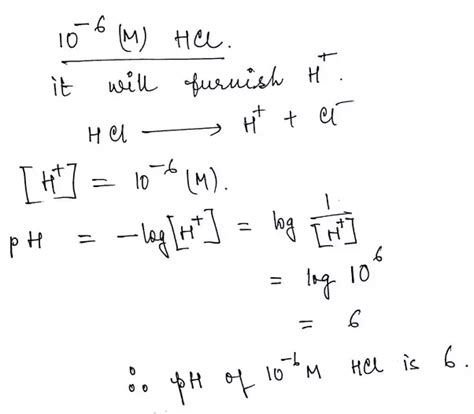 10⁻⁶ (M) HCl.
it will furnish H⁺.
HCl ⟶ H⁺ + Cl⁻
[H⁺] = 10⁻⁶ (M).
pH = -log[H⁺] = log 1/[H⁺]
= log 10⁶
= 6
∴ pH of 10⁻⁶ M HCl is 6.